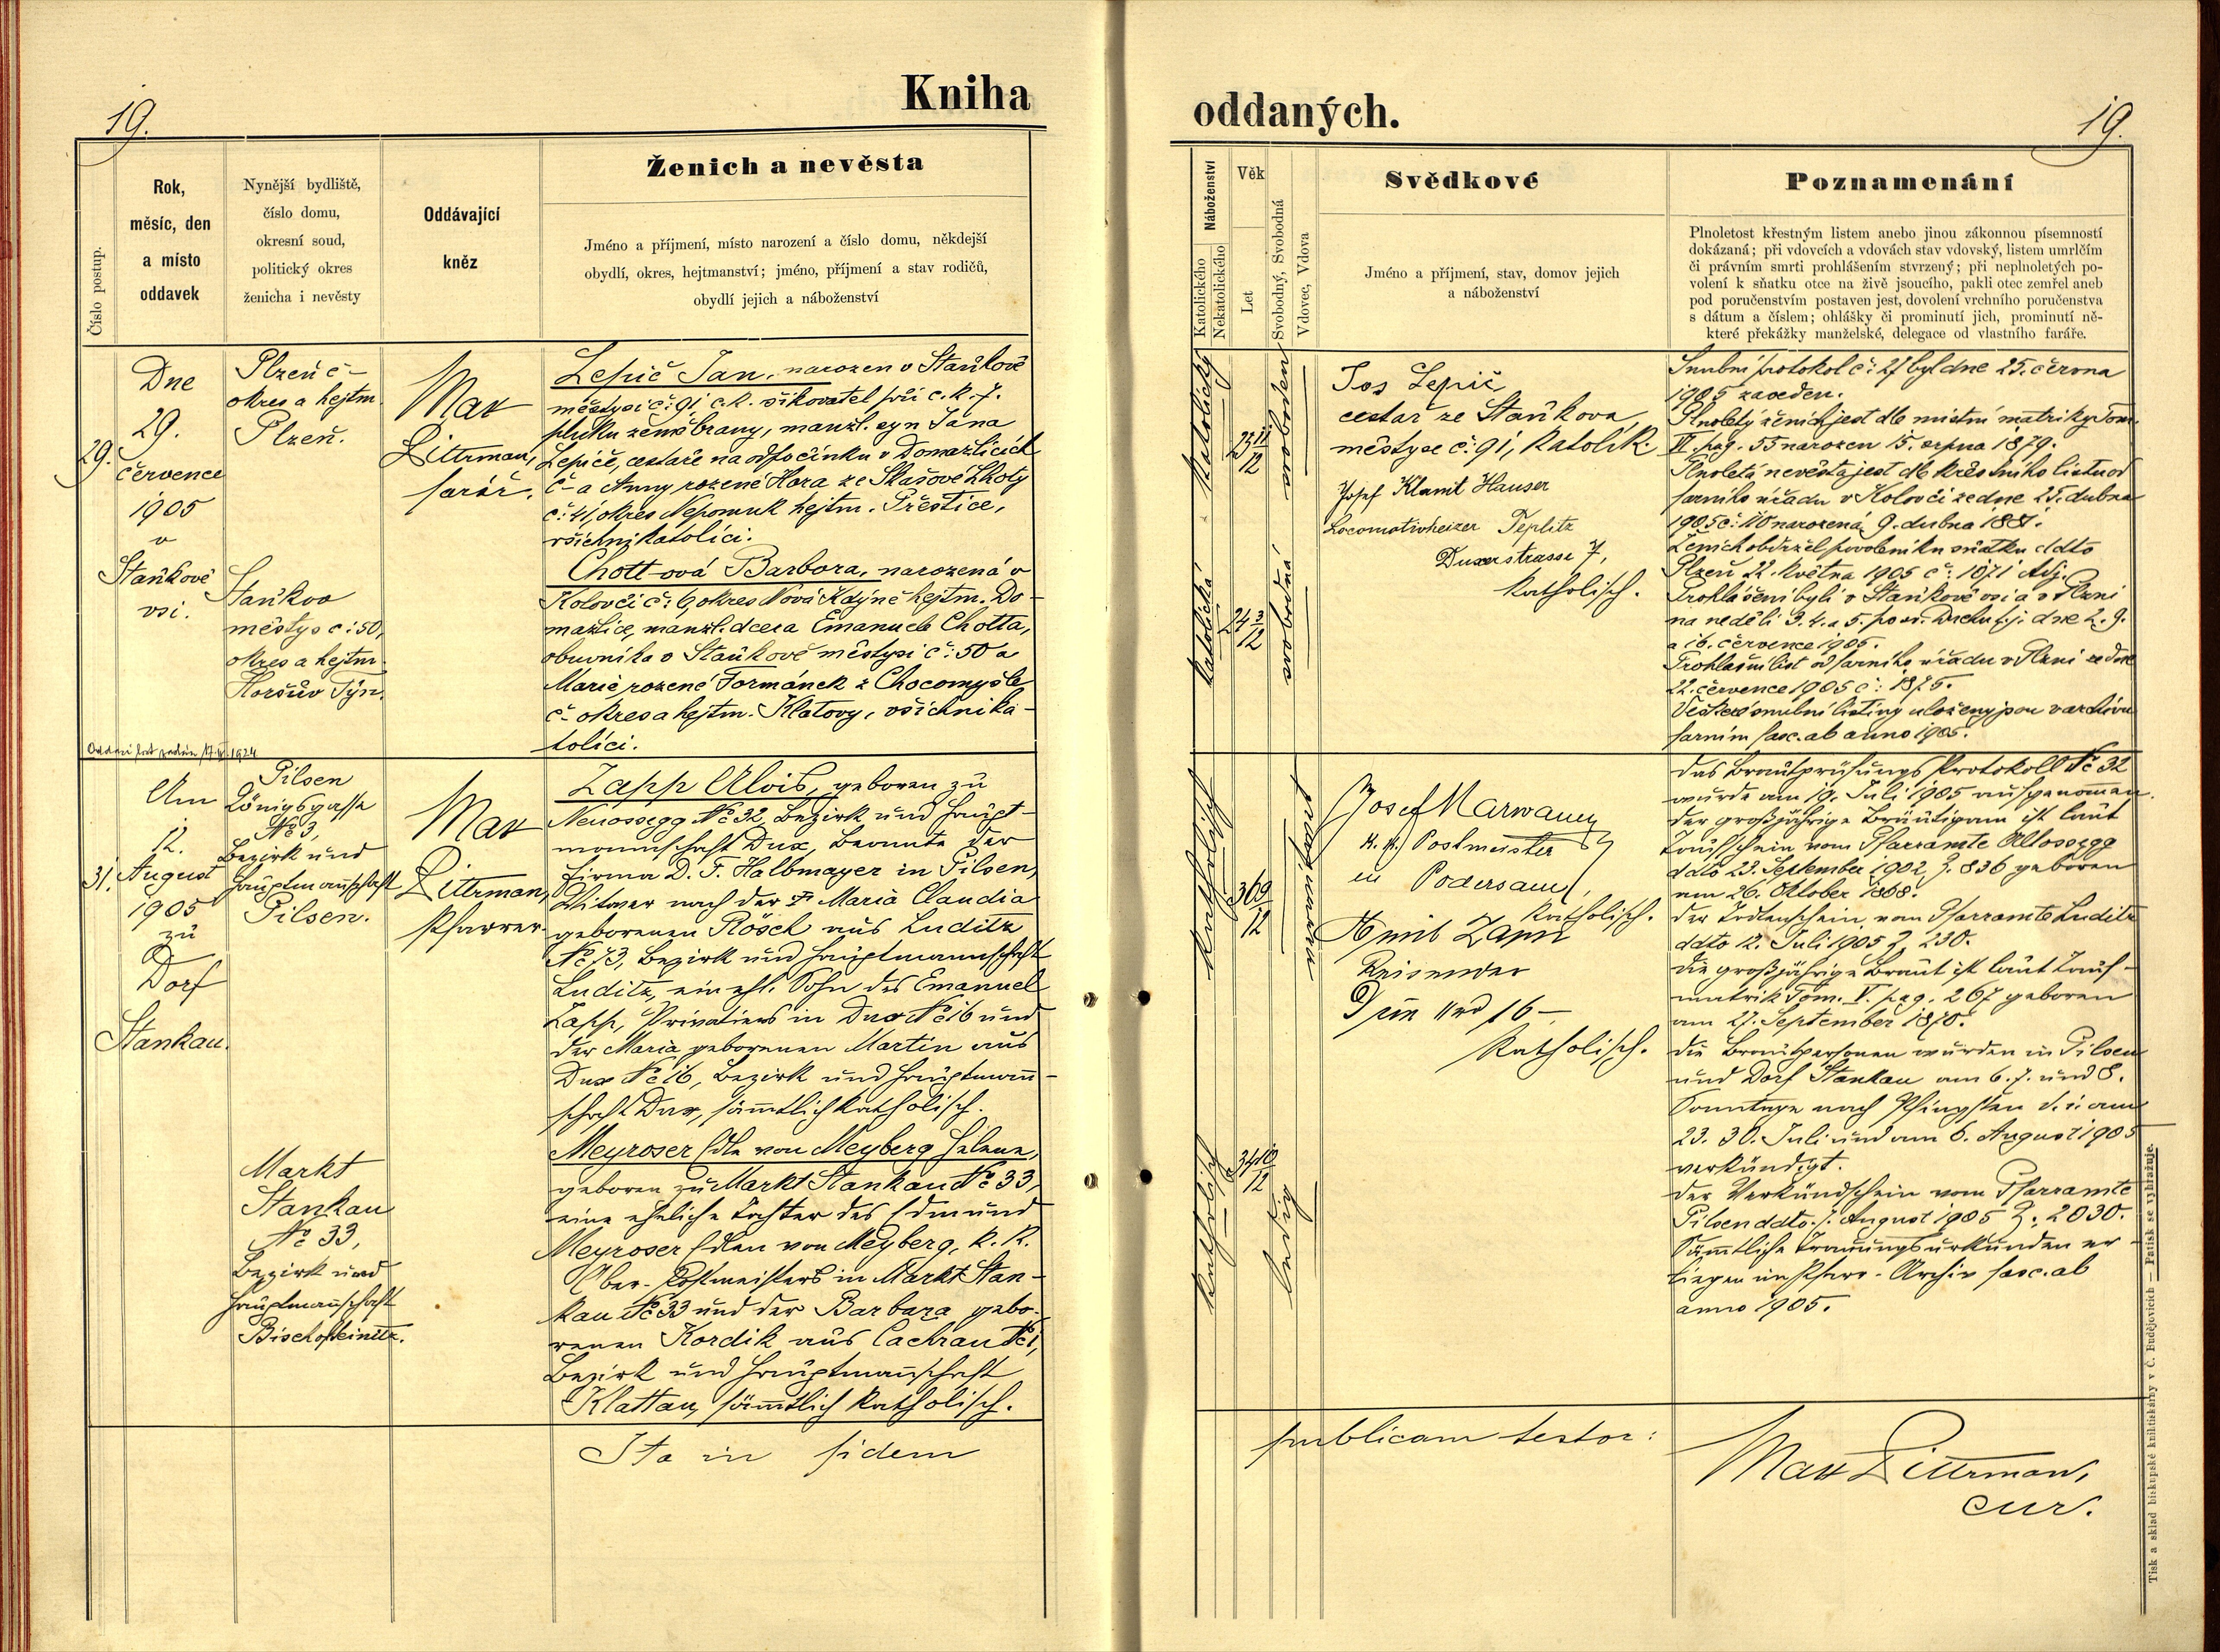 19.
Kniha
oddaných.
19.
Číslo postup.
Rok,
měsíc, den
a místo
oddavek
Nynější bydliště,
číslo domu,
okresní soud,
politický okres
ženicha i nevěsty
Oddávající
kněz
Ženich a nevěsta
Jméno a příjmení, místo narození a číslo domu, někdejší
obydlí, okres, hejtmanství; jméno, příjmení a stav rodičů,
obydlí jejich a náboženství
Náboženství
Katolického
Nekatolického
Věk
Let
Svobodný, Svobodná
Vdovec, Vdova
Svědkové
Jméno a příjmení, stav, domov jejich
a náboženství
Poznamenání
Plnoletost křestným listem anebo jinou zákonnou písemností
dokázaná; při vdovcích a vdovách stav vdovský, listem umrlčím
či právním smrti prohlášením stvrzený; při neplnoletých po-
volení k sňatku otce na živě jsoucího, pakli otec zemřel aneb
pod poručenstvím postaven jest, dovolení vrchního poručenstva
s dátum a číslem; ohlášky či prominutí jich, prominutí ně-
které překážky manželské, delegace od vlastního faráře.
29.
Dne
29.
července
1905
v
Staňkově
vsi.
Plzeň č-
okres a hejtm.
Plzeň.
Staňkov
městys č: 50,
okres a hejtm.
Horšův Týn.
Max
Littrman,
farář.
Lepič Jan, narozen v Staňkově
městysi č: 91, c. k. šikovatel při c. k. 7.
pluku zeměbrany, manžl. syn Jana
Lepiče, cestáře na odpočinku v Domažlicích
č- a Anny rozené Hora ze Skašové Lhoty
č: 41, okres Nepomuk hejtm. Přeštice,
všichni katolíci.
Chott-ová Barbora, narozená v
Kolovči č: 6 okres Nová Kdyně hejtm. Do-
mažlice, manžl. dcera Emanuele Chotta,
obuvníka v Staňkově městysi č: 50 a
Marie rozené Formánek z Chocomyšle
č- okres a hejtm. Klatovy, všichni ka-
tolíci.
katolický
katolická
25 11/12
24 3/12
svoboden
svobodná
Jos Lepič
cestař ze Staňkova,
městyse č: 91, katolík.
Josef Klamit Hauser
Locomotivheizer Teplitz
Duxerstrasse 7,
katholisch.
Snubní protokol č: 27 byl dne 25. června
1905 zaveden.
Plnoletý ženich jest dle místní matriky Tom.
VI. pag. 55 narozen 15. srpna 1879.
Plnoletá nevěsta jest dle křestního listu od
farního úřadu v Kolovči ze dne 25. dubna
1905 č: 110 narozená 9. dubna 1881.
Ženich obdržel povolení ku sňatku ddto
Plzeň 22. května 1905 č: 1871 Adj.
Prohlášeni byli v Staňkově vsi a v Plzni
na neděli 3. 4. a 5. po sv. Duchu t. j. dne 2. 9.
a 16. července 1905.
Prohlašní list od farního úřadu v Plzni ze dne
22. července 1905 č: 1875.
Veškeré snubní listiny uloženy jsou v archivu
farním fasc. ab anno 1905.
31.
Am
12.
August
1905
zu
Dorf
Stankau.
Pilsen
Königsgasse
№ 3,
Bezirk und
Hauptmannschaft
Pilsen.
Markt
Stankau
№ 33,
Bezirk und
Hauptmannschaft
Bischofteinitz.
Max
Littrman,
Pfarrer.
Zapp Alois, geboren zu
Neuossegg № 32, Bezirk und Haupt-
mannschaft Dux, Beamte der
Firma D. F. Halbmayer in Pilsen,
Witwer nach der † Maria Claudia
geborenen Rösch aus Luditz
№ 73, Bezirk und Hauptmannschaft
Luditz, ein ehl. Sohn des Emanuel
Zapp, Privatiers in Dux № 16 und
der Maria geborenen Martin aus
Dux № 16, Bezirk und Hauptmann-
schaft Dux, sämmtlich katholisch.
Meyroser Edle von Meyberg Helene,
geboren zu Markt Stankau № 33,
eine eheliche Tochter des Edmund
Meyroser Edlen von Meyberg, k. k.
Ober-Postmeisters in Markt Stan-
kau № 33 und der Barbara gebo-
renen Kordik aus Cachrau № 1,
Bezirk und Hauptmannschaft
Klattau, sämmtlich katholisch.
katholisch
katholisch
36 9/12
34 10/12
ledig
Josef Marwaney
k. k. Postmeister
in Podersam,
katholisch.
Emil Zapp
Reisender
katholisch.
Das Brautprüfungs Protokoll № 32
wurde am 19. Juli 1905 aufgenommen.
Der großjährige Bräutigam ist laut
Taufschein vom Pfarramte Altossegg
ddto 23. September 1902, Z. 836 geboren
am 26. Oktober 1868.
Der Todtenschein vom Pfarramte Luditz
ddto 12. Juli 1905 Z. 230.
Die großjährige Braut ist laut Tauf-
matrik Tom. V. pag. 267 geboren
am 27. September 1870.
Die Brautpersonen wurden in Pilsen
und Dorf Stankau am 6. 7. und 8.
Sonntage nach Pfingsten d. i. am
23. 30. Juli und am 6. August 1905
verkündigt.
Der Verkündschein vom Pfarramte
Pilsen ddto 7. August 1905 Z. 2030.
Sämmtliche Trauungsurkunden er-
liegen im Pfarr-Archiv fasc. ab
anno 1905.
Ita in fidem
publicam testor:
Max Littrman,
cur.
Tisk a sklad biskupské knihtiskárny v Č. Budějovicích — Patisk se vyhražuje.